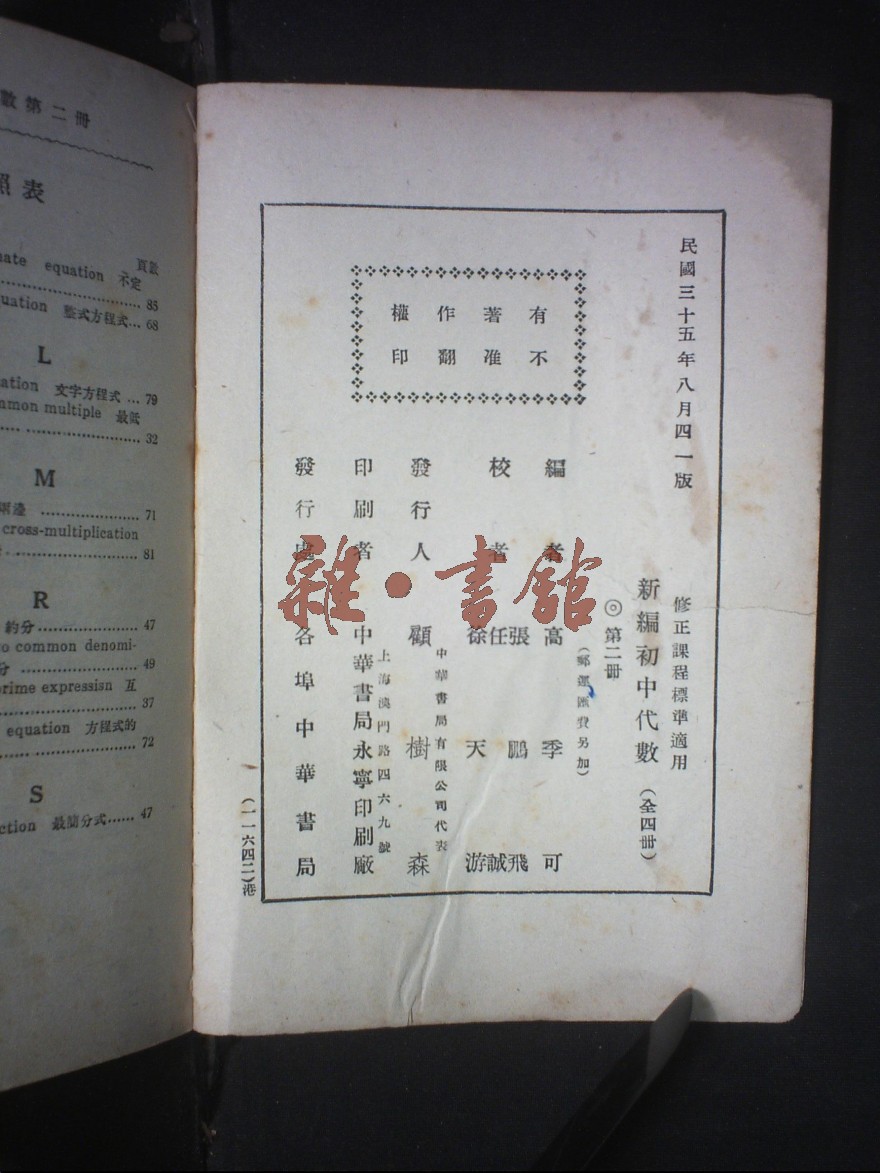 數第二冊
照表
頁數
nate equation 不定
85
uation 整式方程式... 68
L
ation 文字方程式 ... 79
mmon multiple 最低
32
M
兩邊 71
cross-multiplication
81
R
約分 47
to common denomi-
分 49
prime expressisn 互
37
equation 方程式的
72
S
ction 最簡分式...... 47
民國三十五年八月四一版
修正課程標準適用
新編初中代數（全四冊）
◎第二冊
（郵運匯費另加）
有不
著准
作翻
權印
編者 高季可
校者 張鵬飛
任誠
徐天游
發行人 中華書局有限公司代表
顧樹森
印刷者 上海澳門路四六九號
中華書局永寧印刷廠
發行處 各埠中華書局
（一一六四二）港
雜·書館